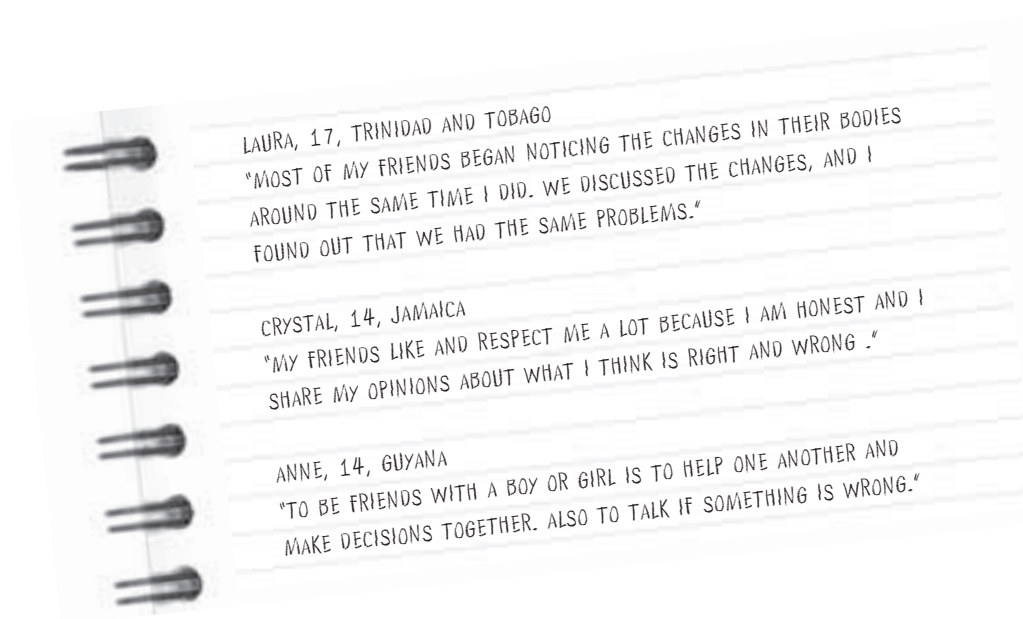 LAURA, 17, TRINIDAD AND TOBAGO
"MOST OF MY FRIENDS BEGAN NOTICING THE CHANGES IN THEIR BODIES
AROUND THE SAME TIME I DID. WE DISCUSSED THE CHANGES, AND I
FOUND OUT THAT WE HAD THE SAME PROBLEMS."
CRYSTAL, 14, JAMAICA
"MY FRIENDS LIKE AND RESPECT ME A LOT BECAUSE I AM HONEST AND I
SHARE MY OPINIONS ABOUT WHAT I THINK IS RIGHT AND WRONG ."
ANNE, 14, GUYANA
"TO BE FRIENDS WITH A BOY OR GIRL IS TO HELP ONE ANOTHER AND
MAKE DECISIONS TOGETHER. ALSO TO TALK IF SOMETHING IS WRONG."